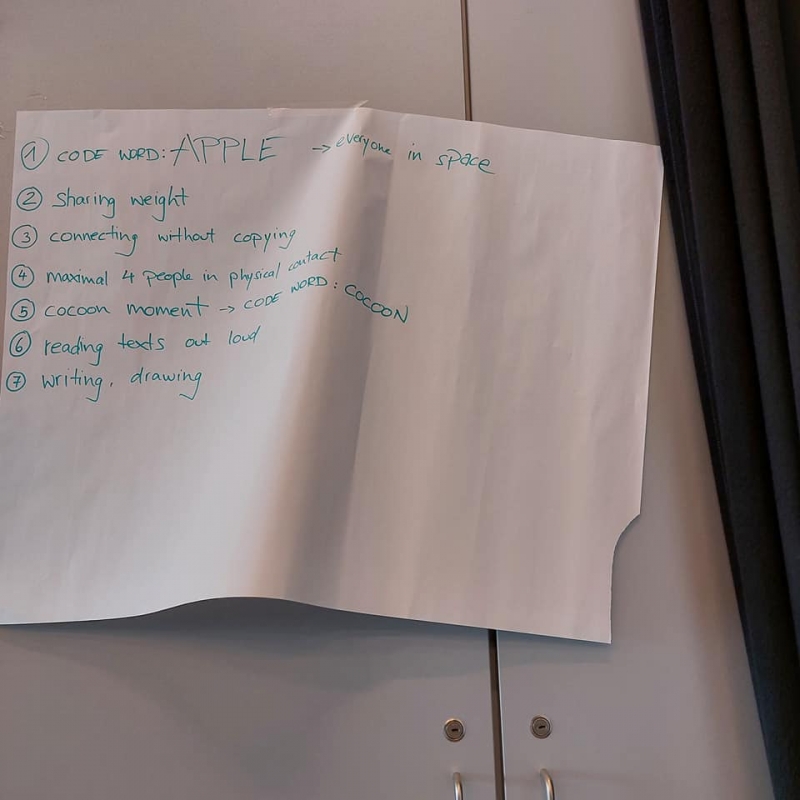 ① CODE WORD: APPLE → everyone in space
② sharing weight
③ connecting without copying
④ maximal 4 people in physical contact
⑤ cocoon moment → CODE WORD: COCOON
⑥ reading texts out loud
⑦ writing, drawing